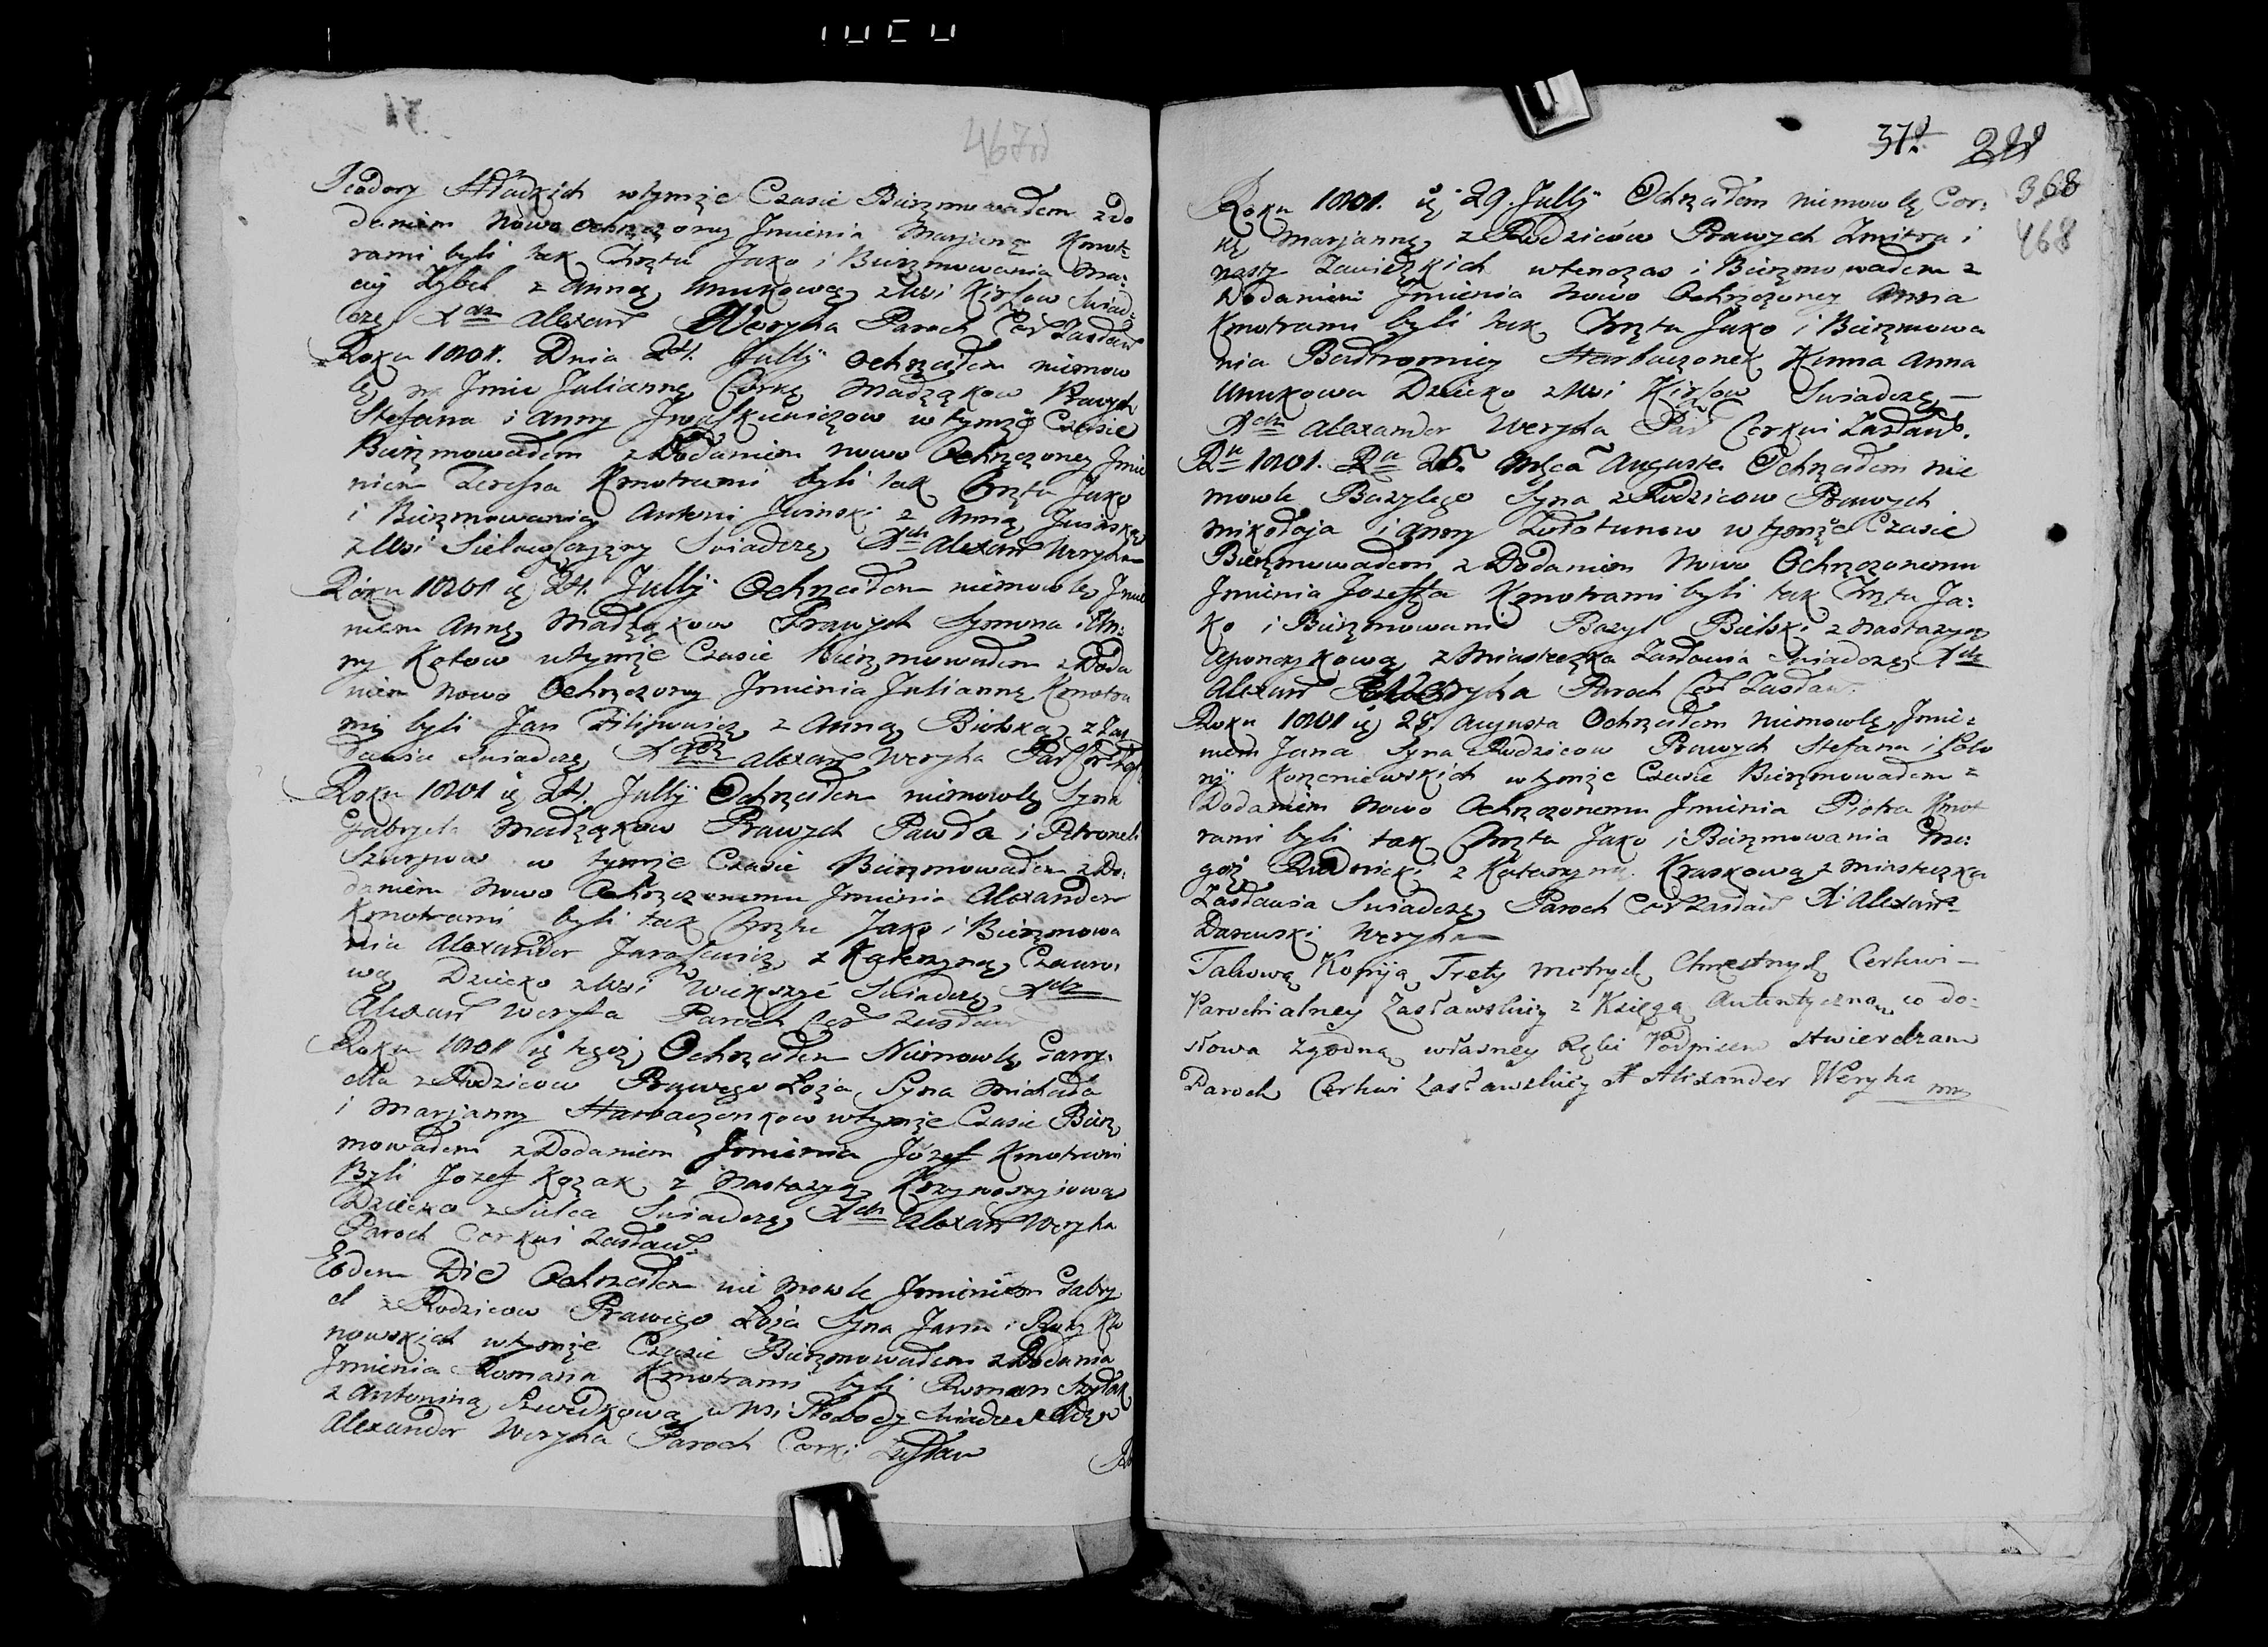 467od
Teodory Hładkich wtymże Czasie Bierzmowałem zdo
daniem Nowo ochrzczoney Jmienia Marjanę Kmot=
rami byli tak Chrztu Jako i Bierzmowania Ma:
ciey Zybel z Anną Unukową zWsi Kirłow Swiad=
czę Xdz Alexan Weryha Paroch Cer Zasław
Roku 1801. Dnia 24. Julÿ Ochrzciłem niemow
lę na Jmie Juliannę Corkę Małżąkow Prawych
Stefana i Anny Jwaszkiewiczow wtymże Czasie
Bierzmowałem zDodaniem nowo Ochrzczoney Jmie
niem Teressa Kmotrami byli tak Chrztu Jako
i Bierzmowania Antoni Jusinski z Anną Jusinską
zWsi Sielawszczyzny Swiadczę Xdz Alexan Weryha
Roku 1801 ią 24. Julÿ Ochrzciłem niemowlę Jmie
niem Annę Małżąkow Prawych Symona i An:
ny Kotow wtymże Czasie Bierzmowałem zDoda
niem nowo Ochrzczoney Jmienia Juliannę Kmotra
mi byli Jan Filipowicz z Anną Bielską z Zas
ławia Swiadczę Xdz Alexan Weryha Par Cer Zas
Roku 1801 ią 24. Julÿ Ochrzciłem niemowlę Syna
Gabryela Małżąkow Prawych Pawła i Petroneli
Szurpow w tymże Czasie Bierzmowałem zDo:
daniem nowo Ochrzczonemu Jmienia Alexander
Kmotrami byli tak Chrztu Jako i Bierzmowa
nia Alexander Jarosewicz z Katerzyną Czauro:
wą Dziecko zWsi Wiekszye Swiadczę Xdz
Alexan Weryha Paroch Cer Zasław
Roku 1801 ią tegoż Ochrzciłem Niemowlę Gawry:
ella zRodzicow Prawego Łoża Syna Michała
i Marjanny Harbaczonkow wtymże Czasie Bierz
mowałem zDodaniem Jmienia Józef Kmotrami
Byli Jozef Kozak z Nastazyą Krzywoszyiową
Dziecko z Sielca Swiadczę Xdz Alexan Weryha
Paroch Cerkwi Zasław:
Eodem Die Ochrzciłem nie mowle Jmieniem Gabry
el zRodzicow Prawego Łoża Syna Jana i
nowskich wtymże Czasie Bierzmowałem zDodania
Jmienia Romana Kmotrami byli Roman Szydłak
z Antoniną Szwedkową wWsi Słobody Swiadczę Xdz
Alexander Weryha Paroch Cerki Zasław
37.
368
468
Roku 1801. ią 29. Julÿ Ochrzciłem niemowlę Cor:
kę Marjannę zRodziców Prawych Zmitra i
nasty Zawiezkich wtenczas i Bierzmowałem z
Dodaniem Jmienia Nowo Ochrzczoney Anna
Kmotrami byli tak Chrztu Jako i Bierzmowa
nia Bartłomiey Harbaczonek Kuma Anna
Unukowa Dziecko zWsi Kirłow Swiadczę —
Xdz Alexander Weryha Par Cerkwi Zasław.
Ru 1801. Da 25. Mscá Augusta Ochrzciłem nie
mowle Bazylego Syna zRodzicow Prawych
mikołaja i Anny Zołotunow wtymże Czasie
Bierzmowałem zDodaniem Nowo Ochrzczonemu
Jmienia Jozeffa Kmotrami byli tak Chrztu Ja:
ko i Bierzmowani Bazyl Bielski z Nastazyą
Aponczykową zMiasteczka Zasławia Swiadczę Xdz
Alexan Weryha Paroch Cer Zasław.
Roku 1801 ią 28. Augusta Ochrzciłem Niemowlę Jmie:
niem Jana Syna Rodzicow Prawych Stefana i Polo
nÿ Korzeniewskich wtymże Czasie Bierzmowałem z
Dodaniem nowo Ochrzczonemu Jmienia Piotra Kmot
rami byli tak Chrztu Jako i Bierzmowania
Rudnicki z Katarzyną Kraskową z Miasteczka
Zasławia Swiadczę Paroch Cer Zasław X Alexan
Darewski Weryha
Takową Kopiją Trety Metryk Chrzestnych Cerkwi —
Parochialney Zasławskiey z Xięgą Autentyczną co do:
słowa Zgodną własney Ręki Podpisem stwierdzam
Paroch Cerkwi Zasławskiey X Alexander Weryha mp